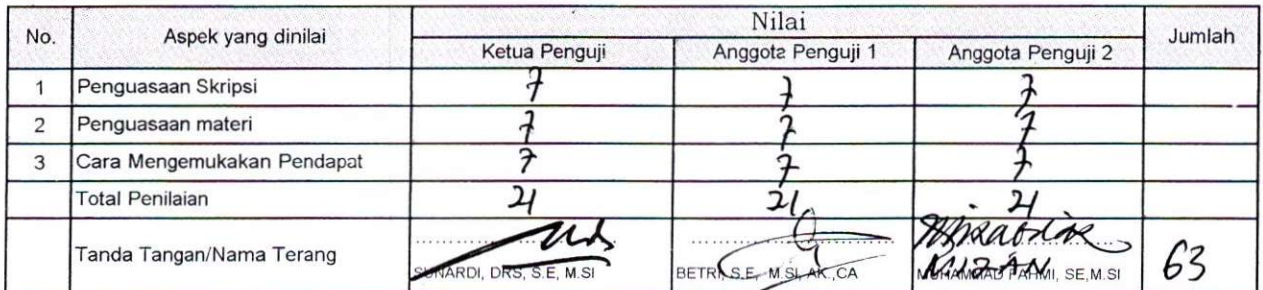 No. Aspek yang dinilai Nilai Jumlah
Ketua Penguji Anggota Penguji 1 Anggota Penguji 2
1 Penguasaan Skripsi 7 7 7
2 Penguasaan materi 7 7 7
3 Cara Mengemukakan Pendapat 7 7 7
Total Penilaian 21 21 21
Tanda Tangan/Nama Terang 63
SUNARDI, DRS, S.E, M.SI BETRI, S.E, M.SI, AK.,CA MUHAMMAD FAHMI, SE,M.SI
MIZAN